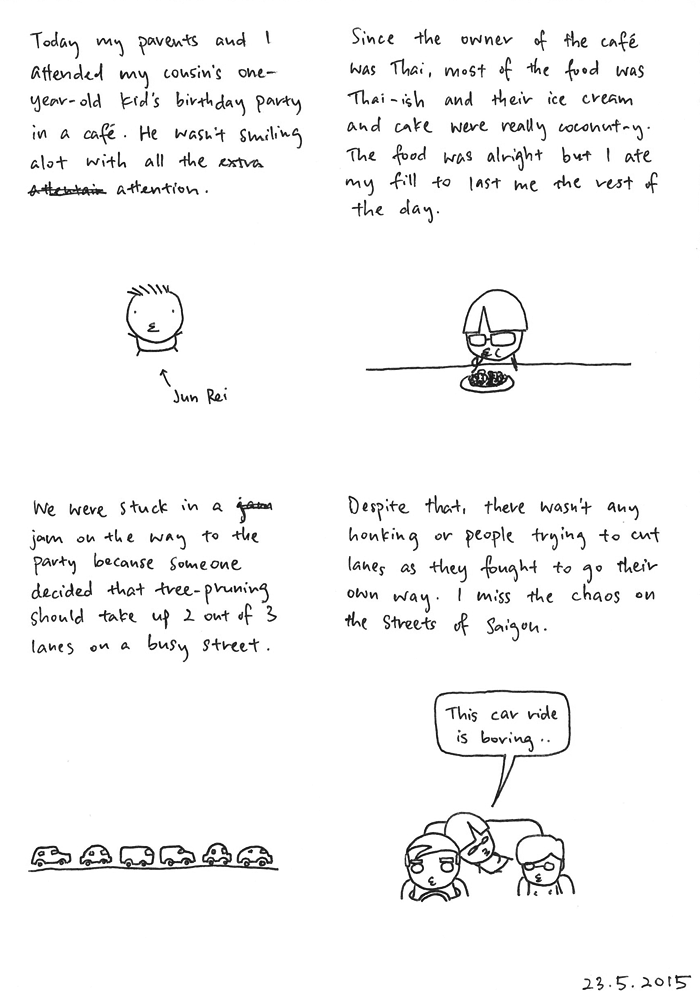 Today my parents and I
attended my cousin's one-
year-old kid's birthday party
in a café. He wasn't smiling
alot with all the extra
attention.
Jun Rei
Since the owner of the café
was Thai, most of the food was
Thai-ish and their ice cream
and cake were really coconut-y.
The food was alright but I ate
my fill to last me the rest of
the day.
We were stuck in a jam
jam on the way to the
party because someone
decided that tree-pruning
should take up 2 out of 3
lanes on a busy street.
Despite that, there wasn't any
honking or people trying to cut
lanes as they fought to go their
own way. I miss the chaos on
the streets of Saigon.
This car ride
is boring..
23.5.2015